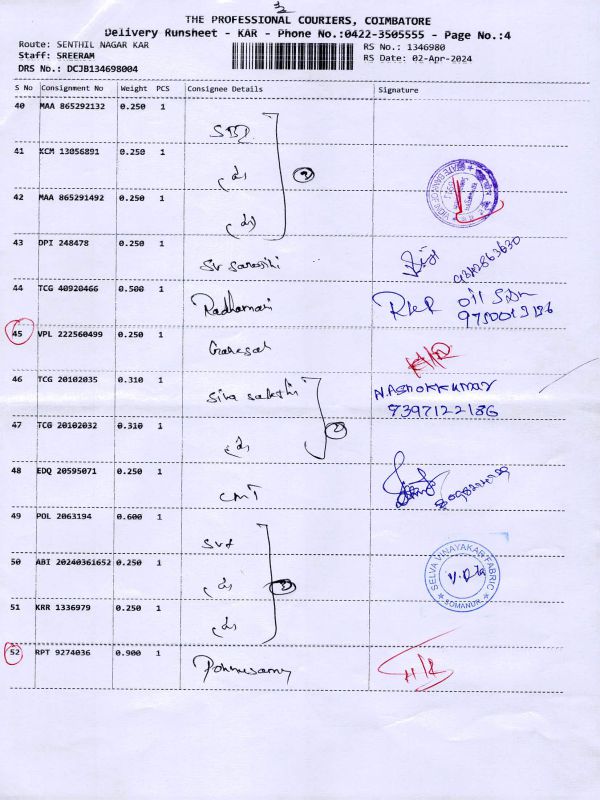 THE PROFESSIONAL COURIERS, COIMBATORE
Delivery Runsheet - KAR - Phone No.:0422-3505555 - Page No.:4
Route: SENTHIL NAGAR KAR RS No.: 1346980
Staff: SREERAM RS Date: 02-Apr-2024
DRS No.: DCJB134698004
S No Consignment No Weight PCS Consignee Details Signature
40 MAA 865292132 0.250 1
SBI
41 KCM 13056891 0.250 1
3
42 MAA 865291492 0.250 1
43 DPI 248478 0.250 1
44 TCG 40920466 0.500 1 Radhamani
9750013186
45 VPL 222560499 0.250 1 Ganesah
46 TCG 20102035 0.310 1 Siva sakthi N.Ashokkumar
9397122186
47 TCG 20102032 0.310 1
2
48 EDQ 20595071 0.250 1
CMT
49 POL 2063194 0.600 1
50 ABI 20240361652 0.250 1
SELVA VINAYAKAR FABRIC
SOMANUR
51 KRR 1336979 0.250 1
52 RPT 9274036 0.900 1
Ponnusamy